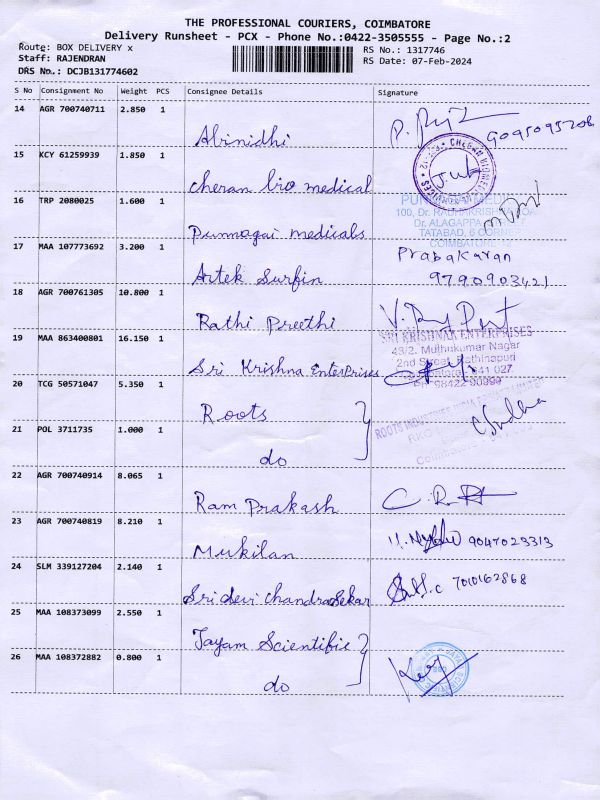 THE PROFESSIONAL COURIERS, COIMBATORE
Delivery Runsheet - PCX - Phone No.:0422-3505555 - Page No.:2
Route: BOX DELIVERY x
RS No.: 1317746
Staff: RAJENDRAN
RS Date: 07-Feb-2024
DRS No.: DCJB131774602
S No Consignment No Weight PCS Consignee Details Signature
14 AGR 700740711 2.850 1
Abinidhi 9095095208
15 KCY 61259939 1.850 1
cheran bio medical
16 TRP 2080025 1.600 1
Punnagai medicals
TATABAD, 6 CORNER
COIMBATORE-12
17 MAA 107773692 3.200 1
Prabakaran
Artek Surfin 9790903421
18 AGR 700761305 10.800 1
Rathi Preethi
19 MAA 863400801 16.150 1
SRI KRISHNAK ENTERPRISES
43/2, Muthukumar Nagar
2nd Street, Rathinapuri
641 027
Sri Krishna enterprises
98422 90999
20 TCG 50571047 5.350 1
Roots
21 POL 3711735 1.000 1
do
22 AGR 700740914 8.065 1
Ram Prakash
23 AGR 700740819 8.210 1
Mukilan 9047023313
24 SLM 339127204 2.140 1
Sridevi chandrasekar 7010162868
25 MAA 108373099 2.550 1
Jayam Scientific
26 MAA 108372882 0.800 1
do